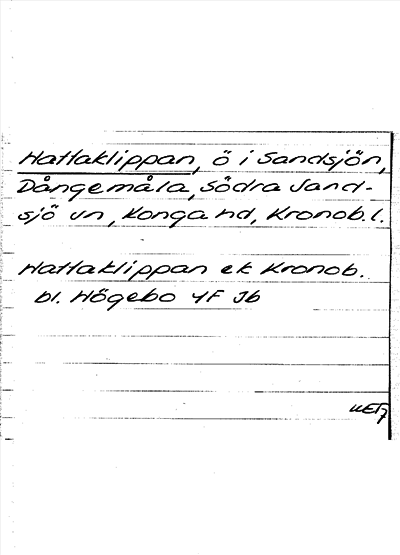 Hattaklippan, ö i Sandsjön,
Dångemåla, Södra Sand-
sjö sn, Konga hd, Kronob. l.
Hattaklippan ek Kronob.
bl. Högebo 4F Jb